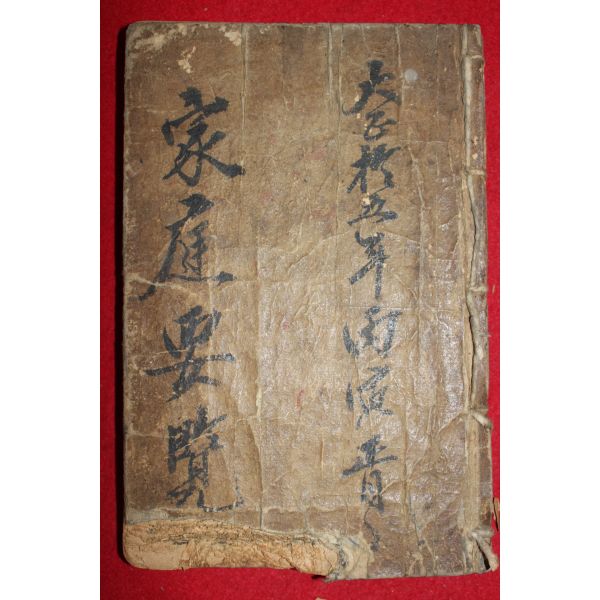 大正拾五年丙寅青
家庭要覽